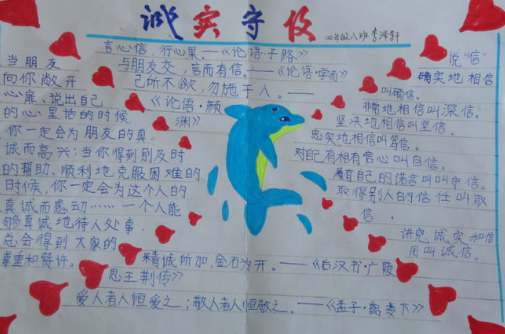 诚实守信
四年级八班 李泽轩
言必信，行必果。——《论语·子路》
与朋友交，言而有信。——《论语·学而》
己所不欲，勿施于人。——
《论语·颜
渊》
当朋友
向你敞开
心扉、说出自己
的心里话的时候，
你一定会为朋友的真
诚而高兴；当你得到别及时
的帮助、顺利地克服困难的
时候，你一定会为这个人的
真诚而感动……一个人能
够真诚地待人处事，
总会得到大家的
尊重和赞许。
说“信”
确实地相信
叫确信。
深情地相信叫深信。
坚决地相信叫坚信。
忠实地相信叫笃信。
对自己有相有信心叫自信。
自己的诺言叫守信。
取得别人的信任叫取
信。
讲究诚实和信
用叫诚信。
精诚所加，金石为开。——《后汉书·广陵
思王荆传》
爱人者人恒爱之；敬人者人恒敬之。——《孟子·离娄下》